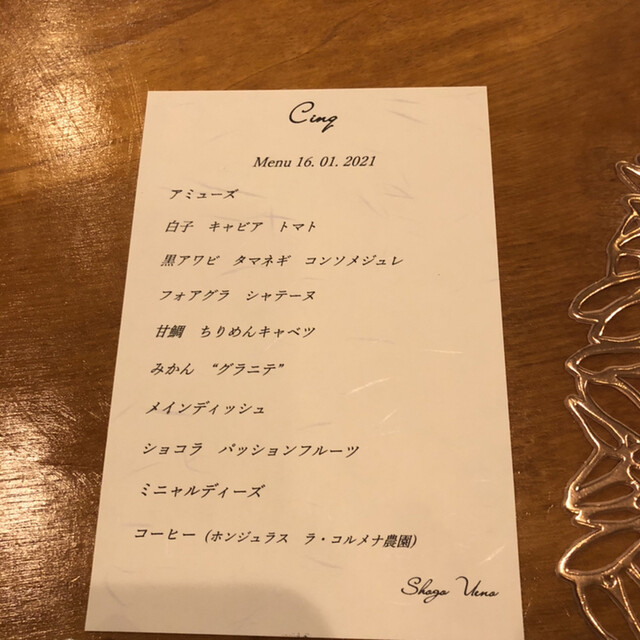 Cinq
Menu 16. 01. 2021
アミューズ
白子 キャビア トマト
黒アワビ タマネギ コンソメジュレ
フォアグラ シャテーヌ
甘鯛 ちりめんキャベツ
みかん “グラニテ”
メインディッシュ
ショコラ パッションフルーツ
ミニャルディーズ
コーヒー (ホンジュラス ラ・コルメナ農園)
Shogo Ueno